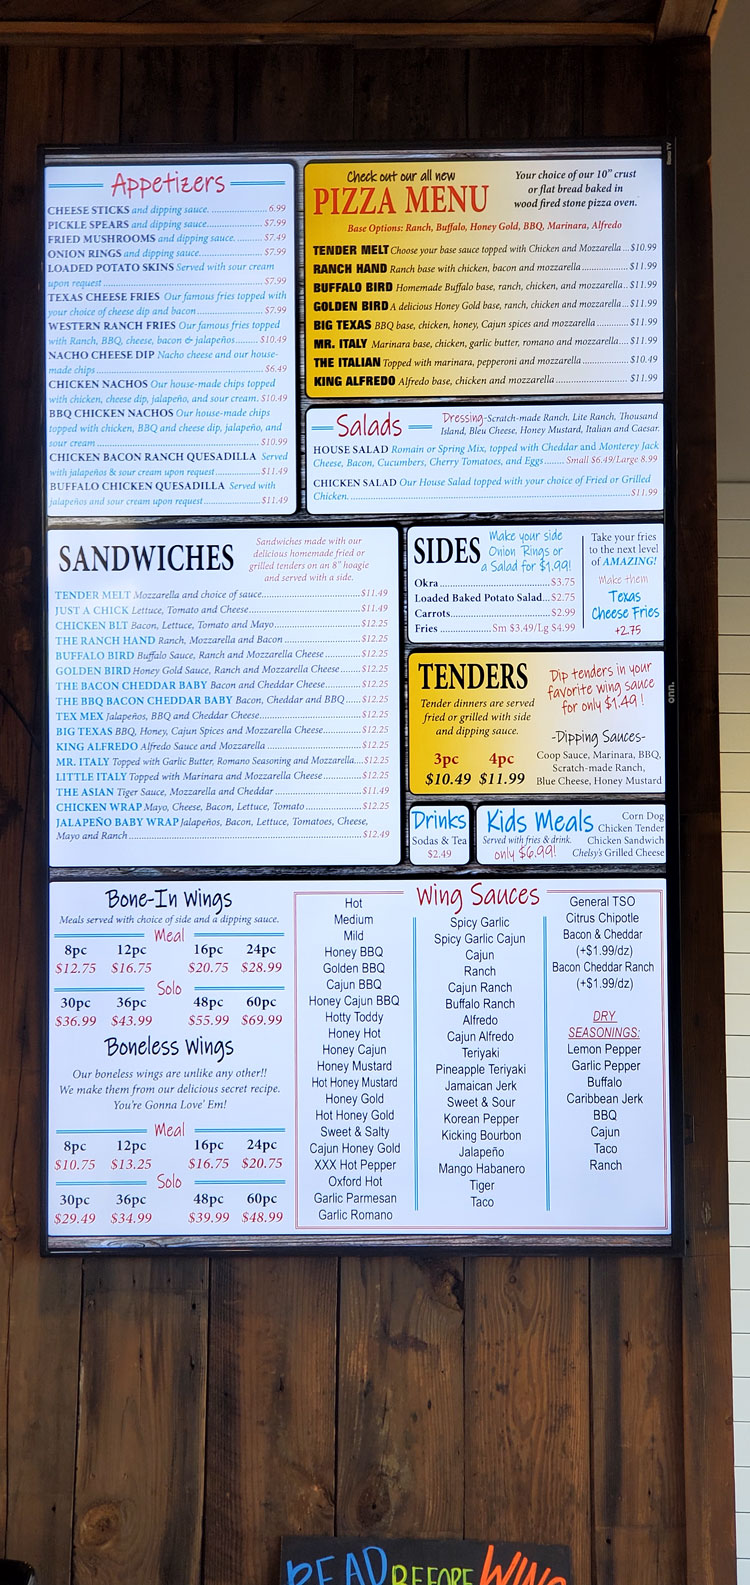 Appetizers
CHEESE STICKS and dipping sauce. 6.99
PICKLE SPEARS and dipping sauce. $7.99
FRIED MUSHROOMS and dipping sauce. $7.49
ONION RINGS and dipping sauce. $7.99
LOADED POTATO SKINS Served with sour cream
upon request $7.99
TEXAS CHEESE FRIES Our famous fries topped with
your choice of cheese dip and bacon $7.99
WESTERN RANCH FRIES Our famous fries topped
with Ranch, BBQ, cheese, bacon & jalapeños $10.49
NACHO CHEESE DIP Nacho cheese and our house-
made chips $6.49
CHICKEN NACHOS Our house-made chips topped
with chicken, cheese dip, jalapeño, and sour cream. $10.49
BBQ CHICKEN NACHOS Our house-made chips
topped with chicken, BBQ and cheese dip, jalapeño, and
sour cream $10.99
CHICKEN BACON RANCH QUESADILLA Served
with jalapeños & sour cream upon request $11.49
BUFFALO CHICKEN QUESADILLA Served with
jalapeños and sour cream upon request $11.49
Check out our all new
PIZZA MENU
Your choice of our 10" crust
or flat bread baked in
wood fired stone pizza oven.
Base Options: Ranch, Buffalo, Honey Gold, BBQ, Marinara, Alfredo
TENDER MELT Choose your base sauce topped with Chicken and Mozzarella $10.99
RANCH HAND Ranch base with chicken, bacon and mozzarella $11.99
BUFFALO BIRD Homemade Buffalo base, ranch, chicken, and mozzarella $11.99
GOLDEN BIRD A delicious Honey Gold base, ranch, chicken and mozzarella $11.99
BIG TEXAS BBQ base, chicken, honey, Cajun spices and mozzarella $11.99
MR. ITALY Marinara base, chicken, garlic butter, romano and mozzarella $11.99
THE ITALIAN Topped with marinara, pepperoni and mozzarella $10.49
KING ALFREDO Alfredo base, chicken and mozzarella $11.99
Salads
Dressing-Scratch-made Ranch, Lite Ranch, Thousand
Island, Bleu Cheese, Honey Mustard, Italian and Caesar.
HOUSE SALAD Romain or Spring Mix, topped with Cheddar and Monterey Jack
Cheese, Bacon, Cucumbers, Cherry Tomatoes, and Eggs Small $6.49/Large 8.99
CHICKEN SALAD Our House Salad topped with your choice of Fried or Grilled
Chicken. $11.99
SANDWICHES
Sandwiches made with our
delicious homemade fried or
grilled tenders on an 8" hoagie
and served with a side.
TENDER MELT Mozzarella and choice of sauce $11.49
JUST A CHICK Lettuce, Tomato and Cheese $11.49
CHICKEN BLT Bacon, Lettuce, Tomato and Mayo $12.25
THE RANCH HAND Ranch, Mozzarella and Bacon $12.25
BUFFALO BIRD Buffalo Sauce, Ranch and Mozzarella Cheese $12.25
GOLDEN BIRD Honey Gold Sauce, Ranch and Mozzarella Cheese $12.25
THE BACON CHEDDAR BABY Bacon and Cheddar Cheese $12.25
THE BBQ BACON CHEDDAR BABY Bacon, Cheddar and BBQ $12.25
TEX MEX Jalapeños, BBQ and Cheddar Cheese $12.25
BIG TEXAS BBQ, Honey, Cajun Spices and Mozzarella Cheese $12.25
KING ALFREDO Alfredo Sauce and Mozzarella $12.25
MR. ITALY Topped with Garlic Butter, Romano Seasoning and Mozzarella $12.25
LITTLE ITALY Topped with Marinara and Mozzarella Cheese $12.25
THE ASIAN Tiger Sauce, Mozzarella and Cheddar $11.49
CHICKEN WRAP Mayo, Cheese, Bacon, Lettuce, Tomato $12.25
JALAPEÑO BABY WRAP Jalapeños, Bacon, Lettuce, Tomatoes, Cheese,
Mayo and Ranch $12.49
SIDES
Make your side
Onion Rings or
a Salad for $1.99!
Okra $3.75
Loaded Baked Potato Salad $2.75
Carrots $2.99
Fries Sm $3.49/Lg $4.99
Take your fries
to the next level
of AMAZING!
Make them
Texas
Cheese Fries
+2.75
TENDERS
Tender dinners are served
fried or grilled with side
and dipping sauce.
3pc 4pc
$10.49 $11.99
Dip tenders in your
favorite wing sauce
for only $1.49!
-Dipping Sauces-
Coop Sauce, Marinara, BBQ,
Scratch-made Ranch,
Blue Cheese, Honey Mustard
Drinks
Sodas & Tea
$2.49
Kids Meals
Served with fries & drink.
only $6.99!
Corn Dog
Chicken Tender
Chicken Sandwich
Chelsy's Grilled Cheese
Bone-In Wings
Meals served with choice of side and a dipping sauce.
Meal
8pc 12pc 16pc 24pc
$12.75 $16.75 $20.75 $28.99
Solo
30pc 36pc 48pc 60pc
$36.99 $43.99 $55.99 $69.99
Boneless Wings
Our boneless wings are unlike any other!!
We make them from our delicious secret recipe.
You're Gonna Love' Em!
Meal
8pc 12pc 16pc 24pc
$10.75 $13.25 $16.75 $20.75
Solo
30pc 36pc 48pc 60pc
$29.49 $34.99 $39.99 $48.99
Wing Sauces
Hot
Medium
Mild
Honey BBQ
Golden BBQ
Cajun BBQ
Honey Cajun BBQ
Hotty Toddy
Honey Hot
Honey Cajun
Honey Mustard
Hot Honey Mustard
Honey Gold
Hot Honey Gold
Sweet & Salty
Cajun Honey Gold
XXX Hot Pepper
Oxford Hot
Garlic Parmesan
Garlic Romano
Spicy Garlic
Spicy Garlic Cajun
Cajun
Ranch
Cajun Ranch
Buffalo Ranch
Alfredo
Cajun Alfredo
Teriyaki
Pineapple Teriyaki
Jamaican Jerk
Sweet & Sour
Korean Pepper
Kicking Bourbon
Jalapeño
Mango Habanero
Tiger
Taco
General TSO
Citrus Chipotle
Bacon & Cheddar
(+$1.99/dz)
Bacon Cheddar Ranch
(+$1.99/dz)
DRY
SEASONINGS:
Lemon Pepper
Garlic Pepper
Buffalo
Caribbean Jerk
BBQ
Cajun
Taco
Ranch
Roku TV
onn.
READ BEFORE WING